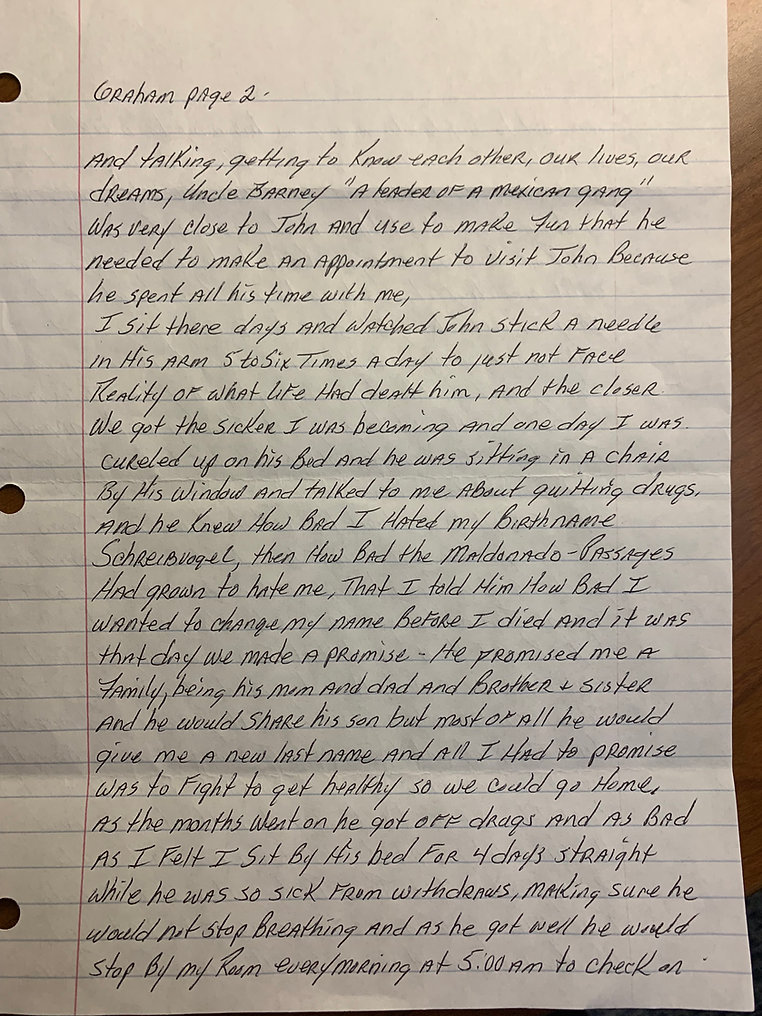 Graham page 2.
And talking, getting to know each other, our lives, our
dreams, Uncle Barney "A leader of a mexican gang"
was very close to John and use to make fun that he
needed to make an appointment to visit John Because
he spent all his time with me,
I sit there days and watched John stick a needle
in His arm 5 to Six Times a day to just not Face
Reality of what life Had dealt him, and the closer
We got the sicker I was becoming and one day I was
cureled up on his Bed and he was sitting in a chair
By His window and talked to me about quitting drugs.
And he knew How Bad I Hated my Birthname
Schreibvogel, then How Bad the Maldonado-Passages
Had grown to hate me, That I told Him How Bad I
wanted to change my name Before I died and it was
that day we made a promise - He promised me a
Family, being his mom and dad and Brother & sister
And he would share his son but most of all he would
give me a new last name and all I Had to promise
was to Fight to get healthy so we could go Home.
As the months went on he got off drugs and as Bad
as I Felt I sit By His bed For 4 days straight
while he was so sick From withdraws, making sure he
would not stop Breathing and as he got well he would
stop By my Room every morning at 5:00 am to check on